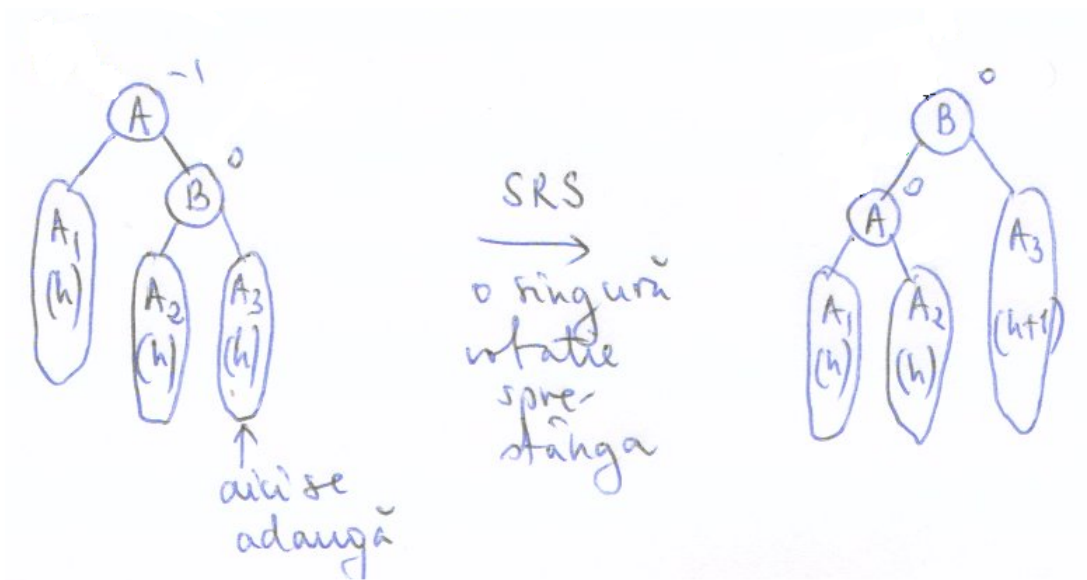 -1
A
0
B
A1
(h)
A2
(h)
A3
(h)
aici se
adaugă
SRS
o singură
rotatie
spre-
stânga
0
B
0
A
A1
(h)
A2
(h)
A3
(h+1)